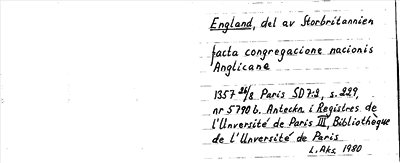 England, del av Storbritannien
facta congregacione nacionis
Anglicane
1357 26/8 Paris SD 7:2, s. 229,
nr 5790 b. Anteckn. i Registres de
l'Université de Paris III, Bibliothèque
de l'Université de Paris
L. Aks. 1980